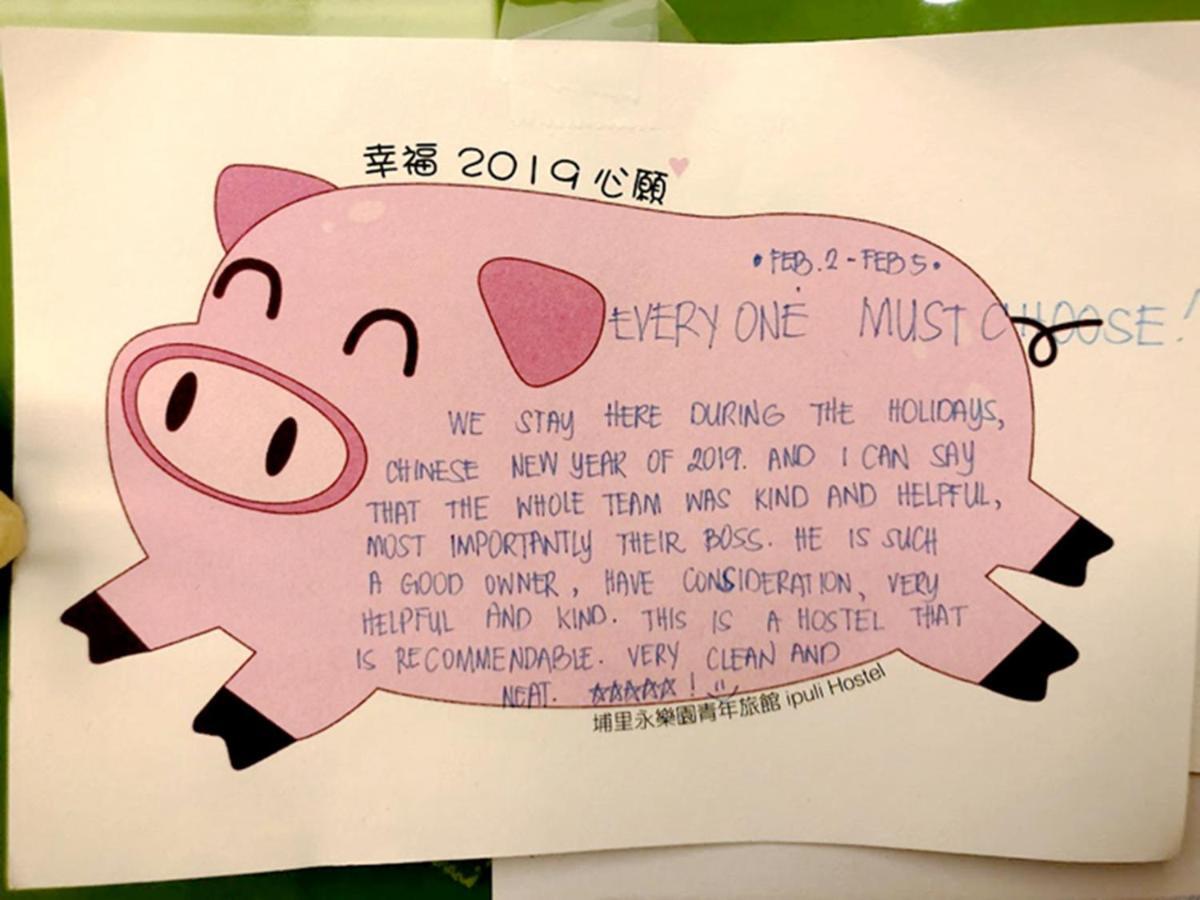 幸福 2019 心願
• FEB. 2 - FEB 5 •
EVERY ONE MUST CHOOSE!
WE STAY HERE DURING THE HOLIDAYS,
CHINESE NEW YEAR OF 2019. AND I CAN SAY
THAT THE WHOLE TEAM WAS KIND AND HELPFUL,
MOST IMPORTANTLY THEIR BOSS. HE IS SUCH
A GOOD OWNER, HAVE CONSIDERATION, VERY
HELPFUL AND KIND. THIS IS A HOSTEL THAT
IS RECOMMENDABLE. VERY CLEAN AND
NEAT. ☆☆☆☆☆!
埔里永樂園青年旅館 ipuli Hostel